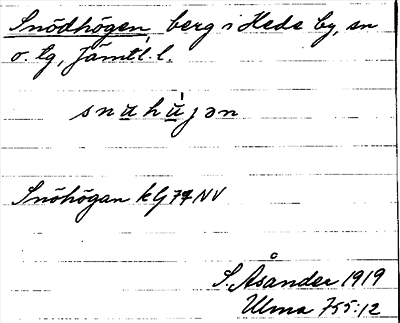 Snödhögen, berg i Hede by, sn
o. tg, Jämtl. l.
snuhùjən
Snöhögan kG 74 NV
S. Åsander 1919
Ulma 755:12